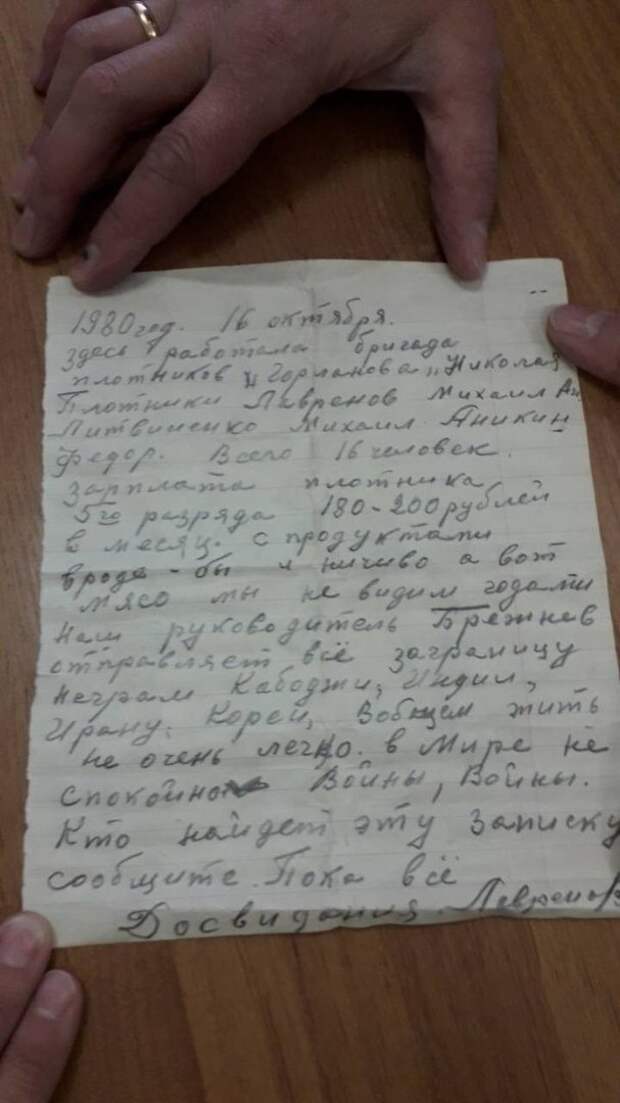 1980 год. 16 октября.
Здесь работала бригада
плотников „Горланова„ Николая
Плотники Лавренов Михаил Ан
Литвиненко Михаил. Аникин
Федор. Всего 16 человек.
Зарплата плотника
5го разряда 180-200 рублей
в месяц. с продуктами
вроде-бы и ничиво а вот
мясо мы не видим годами
Наш руководитель Брежнев
отправляет всё заграницу
Неграм Кабоджи, Индии,
Ирану, Кореи, Вобщем жить
не очень легко. в Мире не
спокойно Войны, Войны.
Кто найдет эту Записку
сообщите. Пока всё
Досвидания. Лавренов